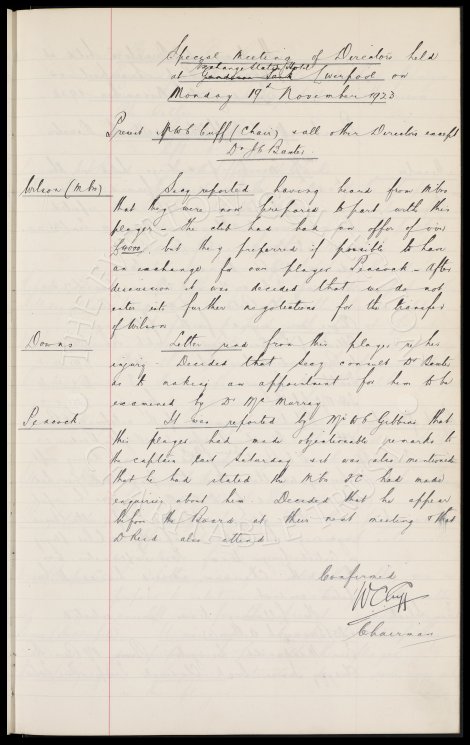 Special Meeting of Directors held
Exchange Station Hotel
at Goodison Park Liverpool on
Monday 19th November 1923
Present Mr W.C. Cuff (Chair) & all other Directors except
Dr J.C. Baxter.
Wilson (M'bro) Secy reported having heard from M'bro
that they were now prepared to part with this
player – The club had had an offer of over
£4000, but they preferred if possible to have
an exchange for our player Peacock – After
discussion it was decided that we do not
enter into further negotiations for the transfer
of Wilson
Downs Letter read from this player re his
injury – Decided that Secy consult Dr Baxter
as to making an appointment for him to be
examined by Dr McMurray
Peacock It was reported by Mr W.C. Gibbins that
this player had made objectionable remarks to
the captain last Saturday & it was also mentioned
that he had stated the M'bro F.C. had made
enquiries about him. Decided that he appear
before the Board at their next meeting & that
D Reid also attend
Confirmed
W.C. Cuff
Chairman